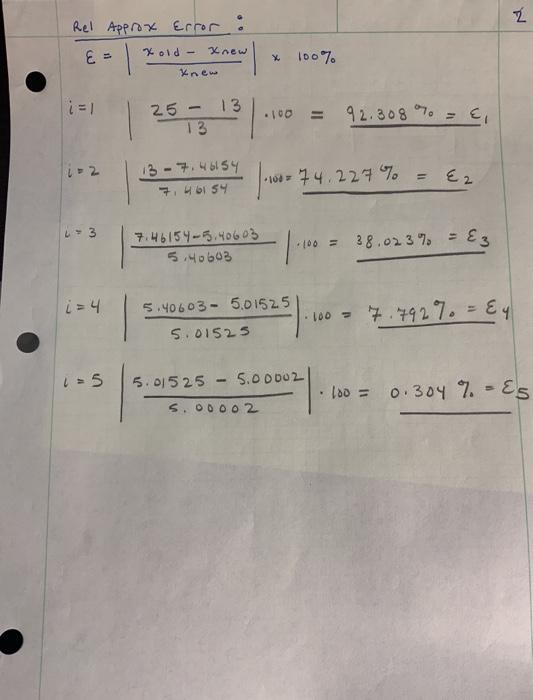 2
Rel Approx Error :
ε = | (xold - xnew) / xnew | x 100%
i=1 | (25 - 13) / 13 | ·100 = 92.308% = ε1
i=2 | (13 - 7.46154) / 7.46154 | ·100= 74.227% = ε2
i=3 | (7.46154-5.40603) / 5.40603 | ·100 = 38.023% = ε3
i=4 | (5.40603- 5.01525) / 5.01525 | ·100 = 7.792% = ε4
i=5 | (5.01525 - 5.00002) / 5.00002 | · 100 = 0.304 % = ε5